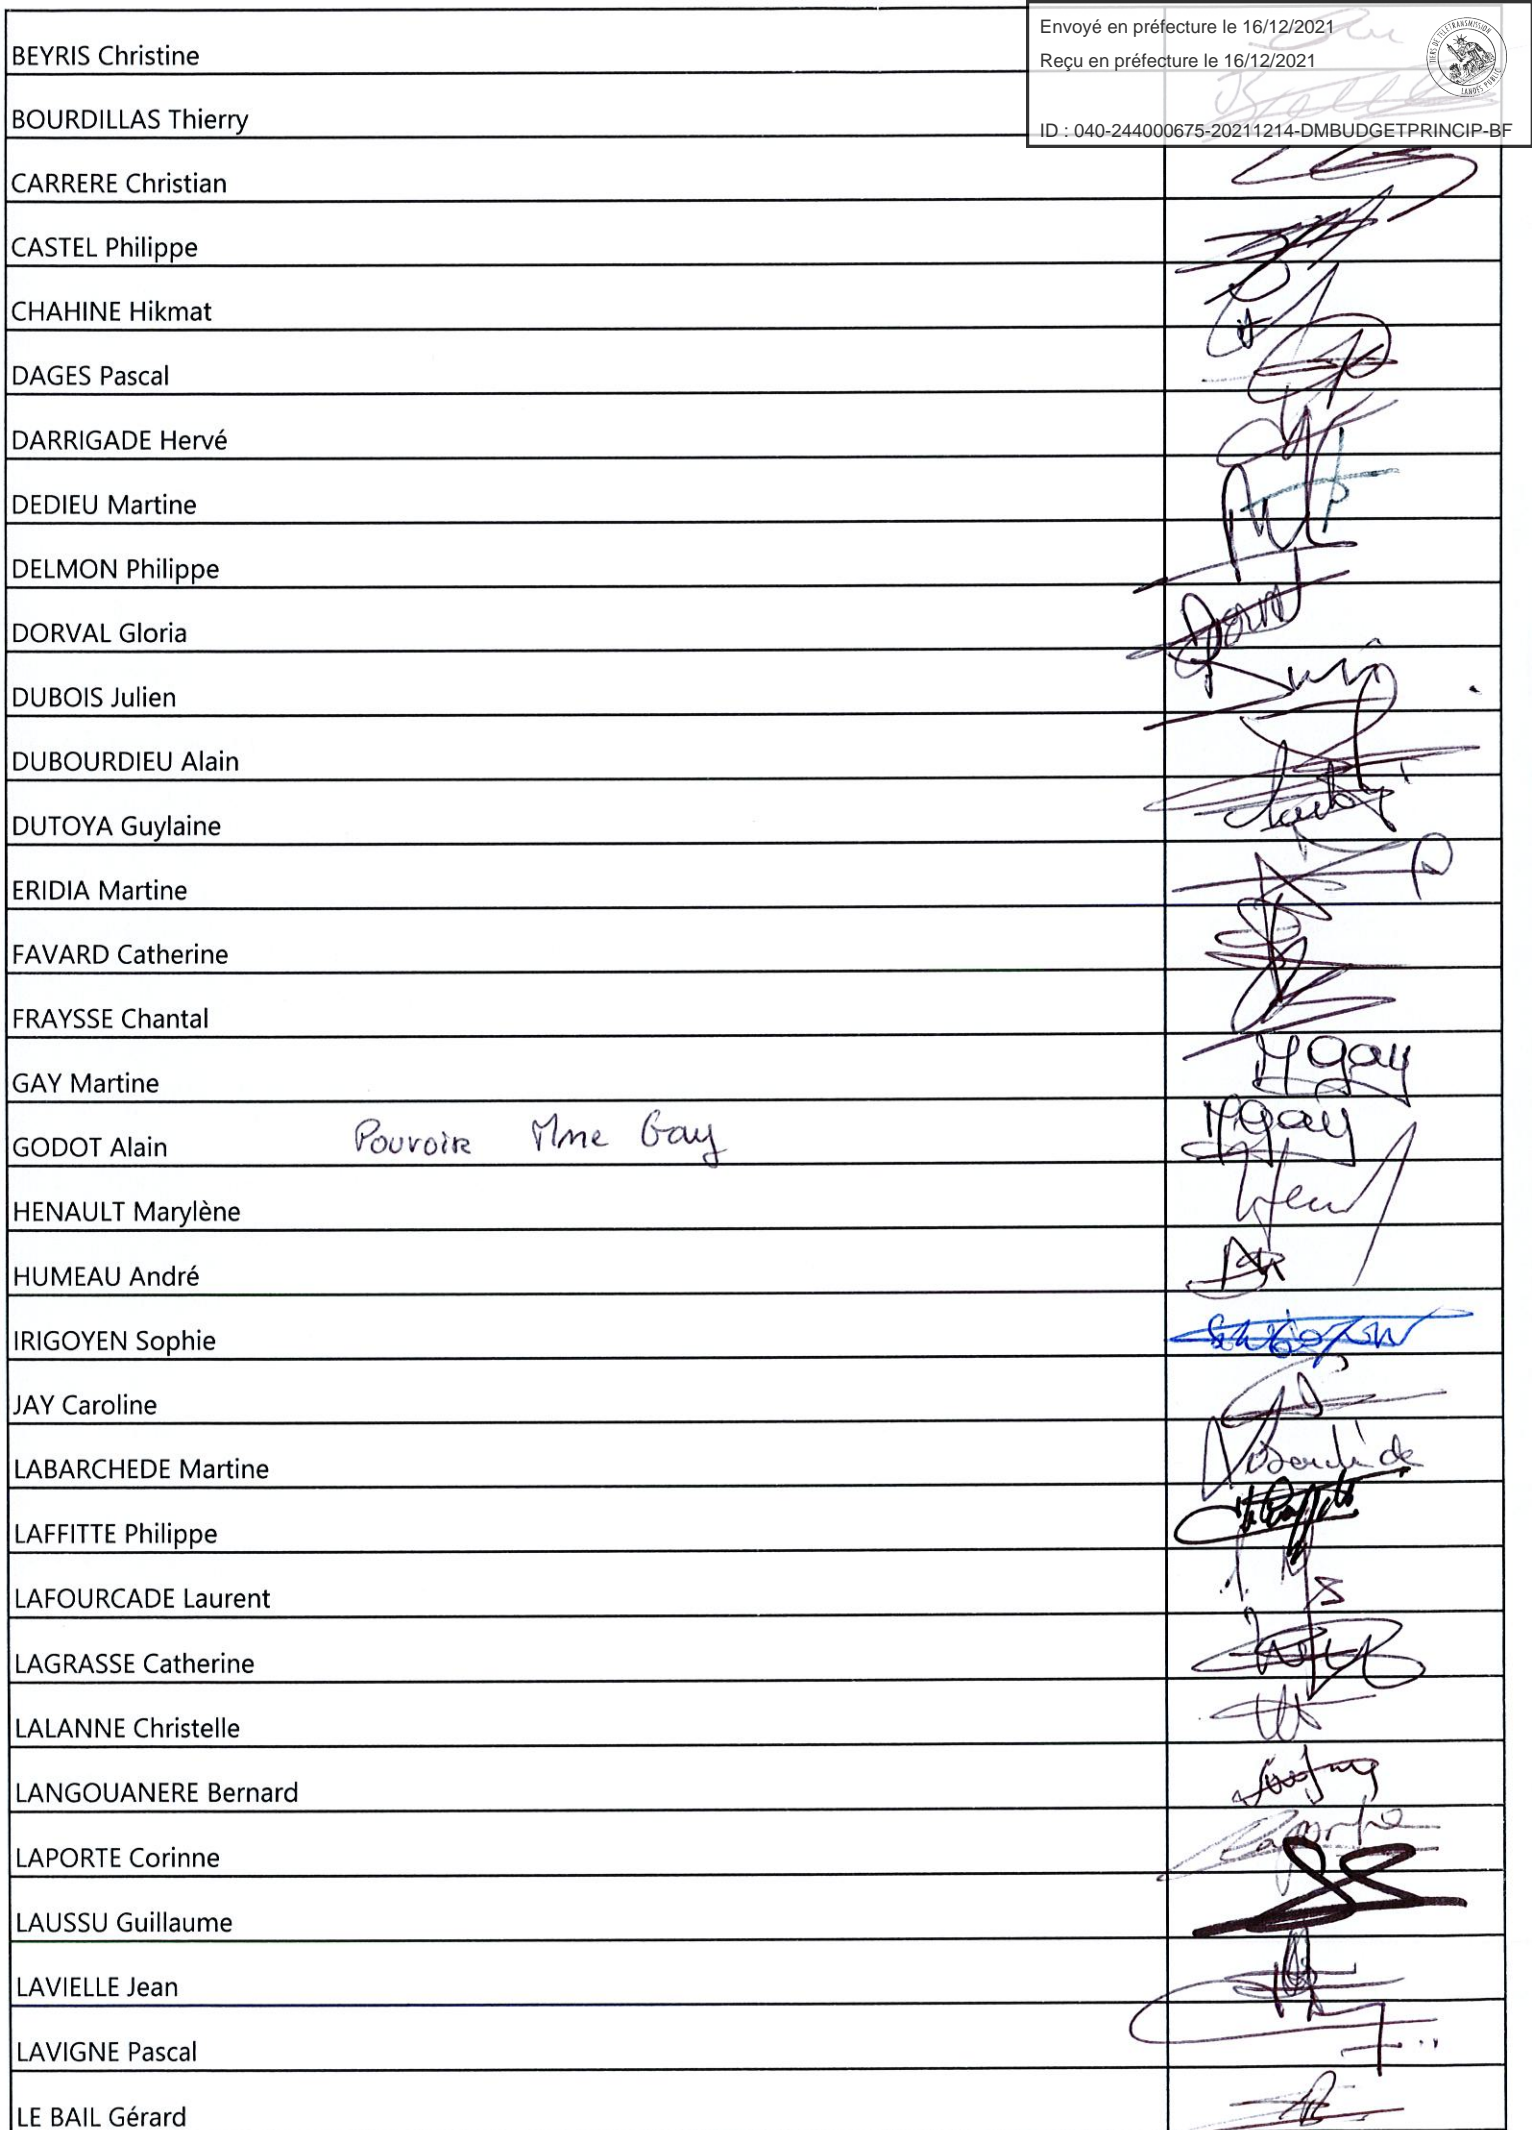 Envoyé en préfecture le 16/12/2021
Reçu en préfecture le 16/12/2021
ID : 040-244000675-20211214-DMBUDGETPRINCIP-BF
BEYRIS Christine
BOURDILLAS Thierry
CARRERE Christian
CASTEL Philippe
CHAHINE Hikmat
DAGES Pascal
DARRIGADE Hervé
DEDIEU Martine
DELMON Philippe
DORVAL Gloria
DUBOIS Julien
DUBOURDIEU Alain
DUTOYA Guylaine
ERIDIA Martine
FAVARD Catherine
FRAYSSE Chantal
GAY Martine M Gay
GODOT Alain Pouvoir Mme Gay M Gay
HENAULT Marylène
HUMEAU André
IRIGOYEN Sophie
JAY Caroline
LABARCHEDE Martine
LAFFITTE Philippe
LAFOURCADE Laurent
LAGRASSE Catherine
LALANNE Christelle
LANGOUANERE Bernard
LAPORTE Corinne Laporte
LAUSSU Guillaume
LAVIELLE Jean
LAVIGNE Pascal
LE BAIL Gérard